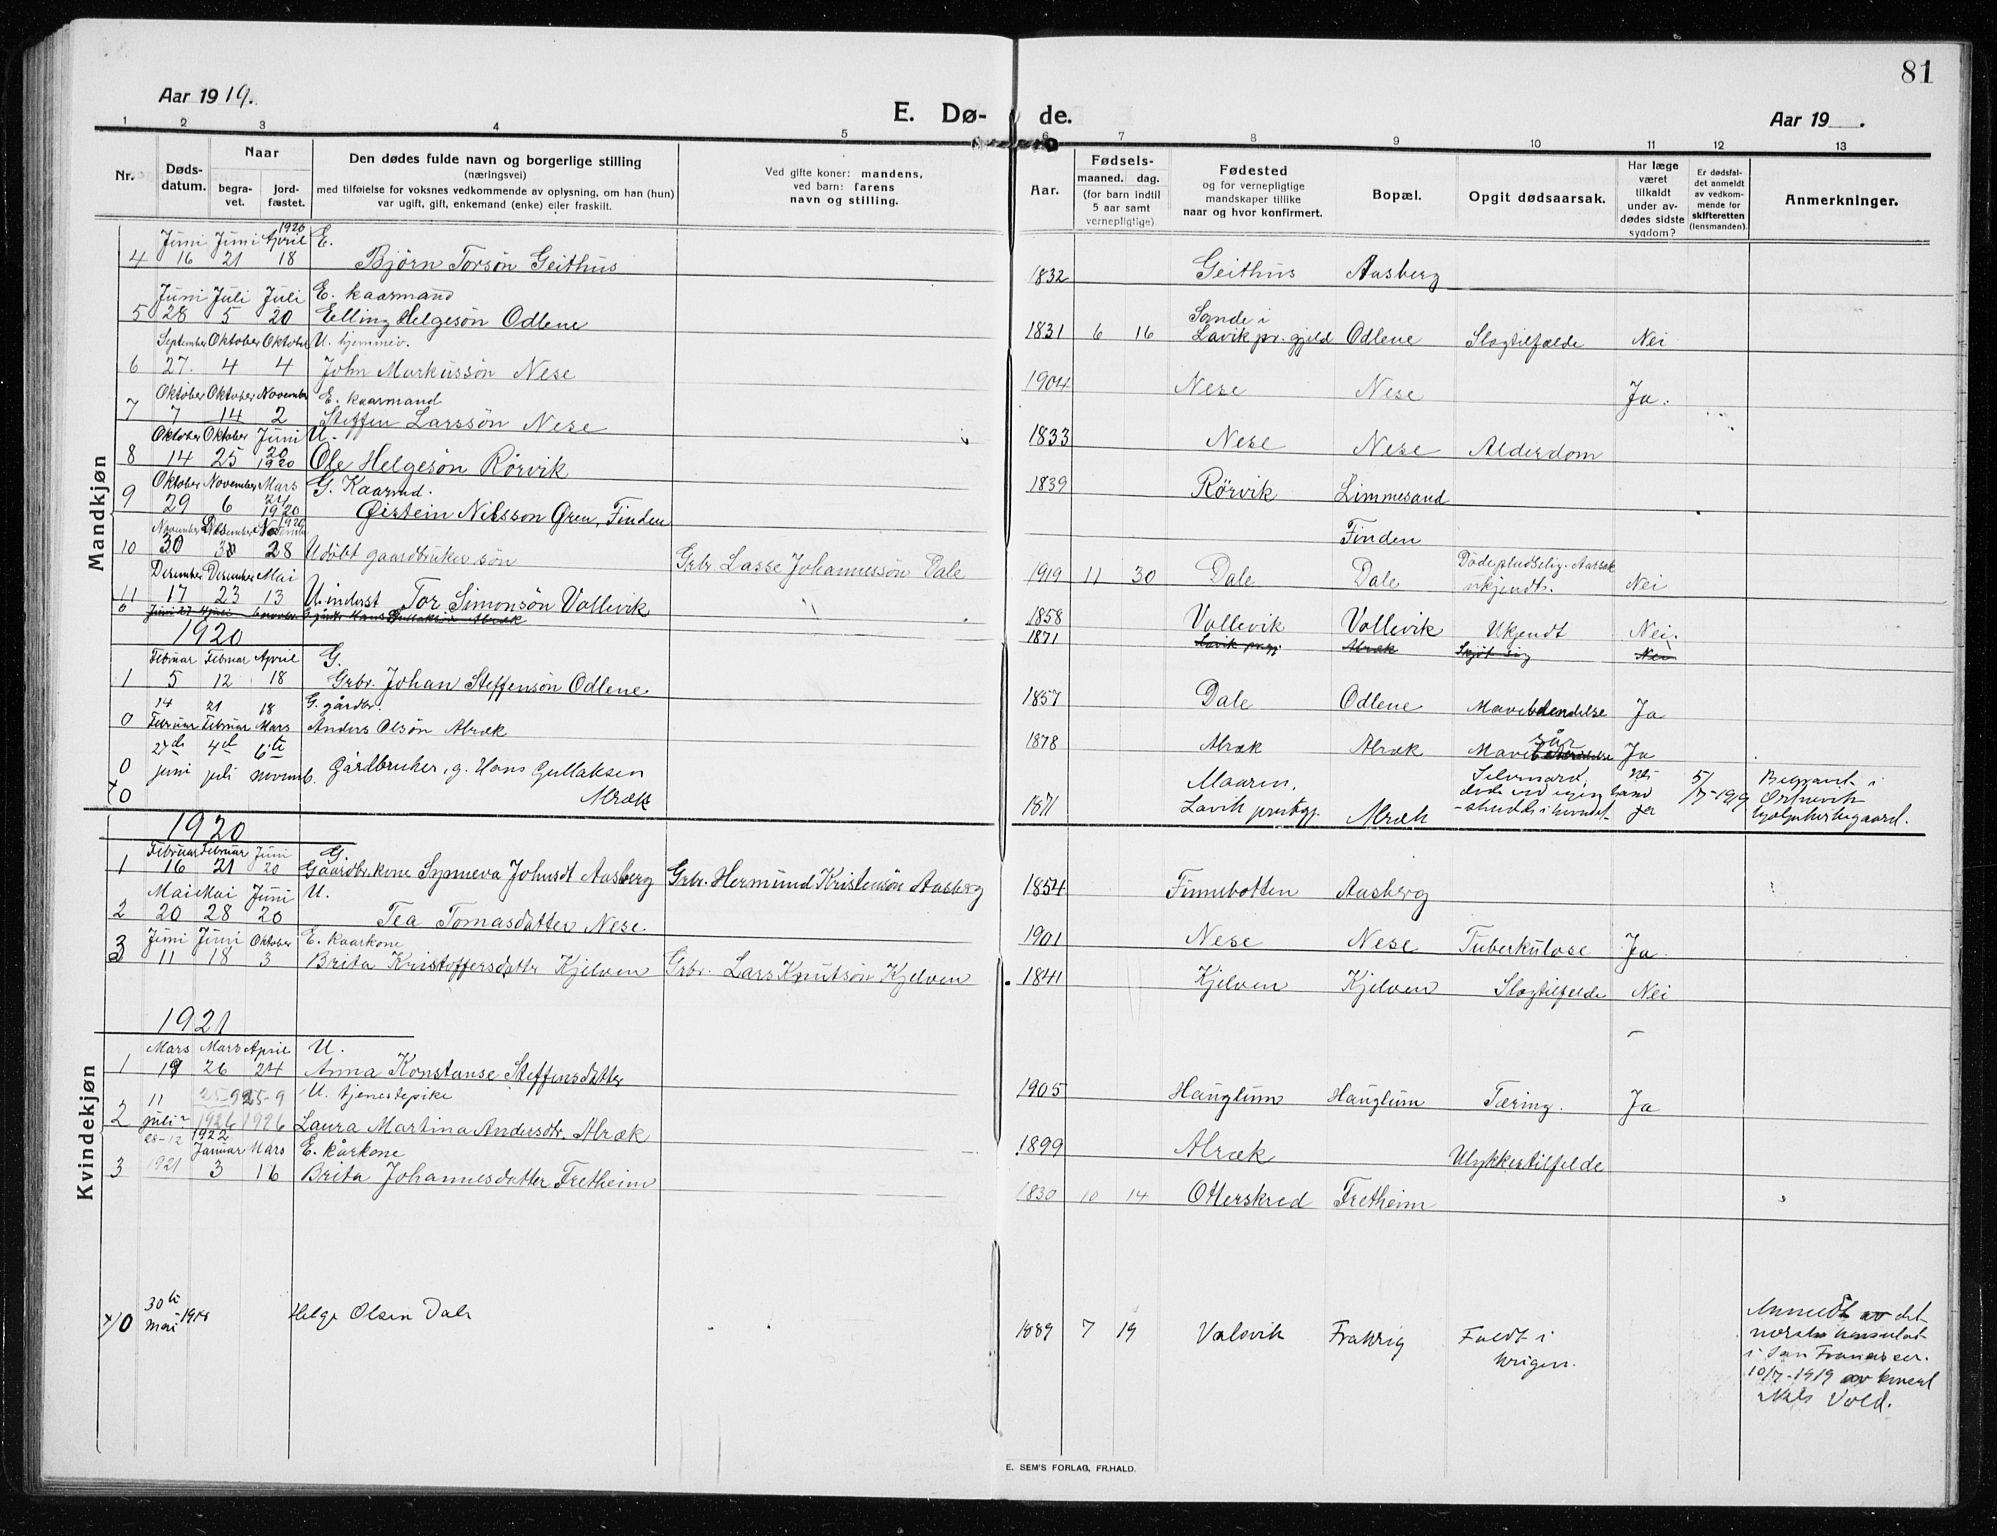 81
Aar 1919.
E. Dø- de.
Aar 19 .
1 2 3 4 5 6 7 8 9 10 11 12 13
Nr.
Døds-
datum.
Naar
begra-
vet.
jord-
fæstet.
Den dødes fulde navn og borgerlige stilling
(næringsvei)
med tilføielse for voksnes vedkommende av oplysning, om han (hun)
var ugift, gift, enkemand (enke) eller fraskilt.
Ved gifte koner: mandens,
ved barn: farens
navn og stilling.
Aar.
Fødsels-
maaned. dag.
(for barn indtil
5 aar samt
vernepligtige)
Fødested
og for vernepligtige
mandskaper tillike
naar og hvor konfirmert.
Bopæl.
Opgit dødsaarsak.
Har læge
været
tilkaldt
under av-
dødes sidste
sygdom?
Er dødsfal-
det anmeldt
av vedkom-
mende for
skifteretten
(lensmanden).
Anmerkninger.
Mandkjøn
Juni Juni April 1920 E.
4 16 21 18 Bjørn Torsøn Geithus 1832 Geithus Aasberg
Juni Juli Juli E. kaarmand
5 28 5 20 Elling Helgesøn Odlene 1831 6 16 Sande i Lavik pr. gjeld Odlene Slagtilfælde Nei
September Oktober Oktober U. hjemmev.
6 27. 4 4 John Markussøn Nese 1904 Nese Nese Ja.
Oktober Oktober November E. kaarmand
7 7 14 2 Steffen Larssøn Nese 1833 Nese Nese Alderdom
Oktober Oktober Juni U.
8 14 25 20 1920 Ole Helgesøn Rørvik 1839 Rørvik Limmesand
Oktober November Mars G. Kaarmd.
9 29 6 21 1920 Øistein Nilsson Øren, Finden Finden
November Desember 1920
10 30 30 28 Udøbt gaardbruker søn Grbr. Lasse Johannessøn Dale 1919 11 30 Dale Dale Døde pludselig. Aarsak ukjendt. Nei
Desember Desember Mai
11 17 23 13 U. inderst Tor Simonsøn Vollevik 1858 Vollevik Vollevik Ukjendt Nei.
0 Juni 27 4 juli 6 novbr. G. gårdbr. Hans Gullaksøn Alræk 1871 Lavik prgj Alræk Skjøt sig Nei
1920
Februar Februar April G.
1 5 12 18 Grbr. Johan Steffensøn Odlene 1857 Dale Odlene Ja
14 21 18 G. gårdbr.
0 Februar Februar Mars Anders Olsøn Alræk 1878 Alræk Alræk Mavesår Ja
27de 4de 6te
0 juni juli novemb. Gårdbruker, g. Hans Gullaksen
+0 Alræk 1871 Maaren, Lavik prestgj. Alræk Selvmord, døde ved egen haand - skudd i hovudet Nei 5/7-1919 Begravet i Ortnevik hjelpekirkegaard.
1920
Februar Februar Juni G.
1 16 21 20 Gaardbr.kone Synneva Johnsdt Aasberg Grbr. Hermund Kristensøn Aasberg 1854 Finnebotten Aasberg
Mai Mai Juni U.
2 20 28 20 Tea Tomasdatter Nese 1901 Nese Nese Tuberkulose Ja.
Juni Juni Oktober E. kaarkone
3 11 18 3 Brita Kristoffersdattr Kjelven Grbr. Lars Knutsøn Kjelven 1841 Kjelven Kjelven Slagtilfelde Nei
Kvindekjøn
1921
Mars Mars April U.
1 19 26 24 Anna Konstanse Steffensdatter 1905 Hauglum Hauglum Tæring. Ja
11 25-9 25-9 U. tjenestepike
2 juli 1926 1926 Laura Martina Andersdtr. Alræk 1899 Alræk Ulykkestilfelde
28-12 1922 Januar Mars E. kårkone
3 1921 3 16 Brita Johannesdatter Fretheim 1830 10 14 Otterskred Fretheim
30te
+/0 Mai 1918 Helge Olsen Dale 1889 7 19 Valsvik Frankrig Faldt i krigen.
Anmeldt av det
norske konsulat
i San Francisco.
10/7-1919 av konsul
Nils Vold.
E. SEM'S FORLAG, FR.HALD.